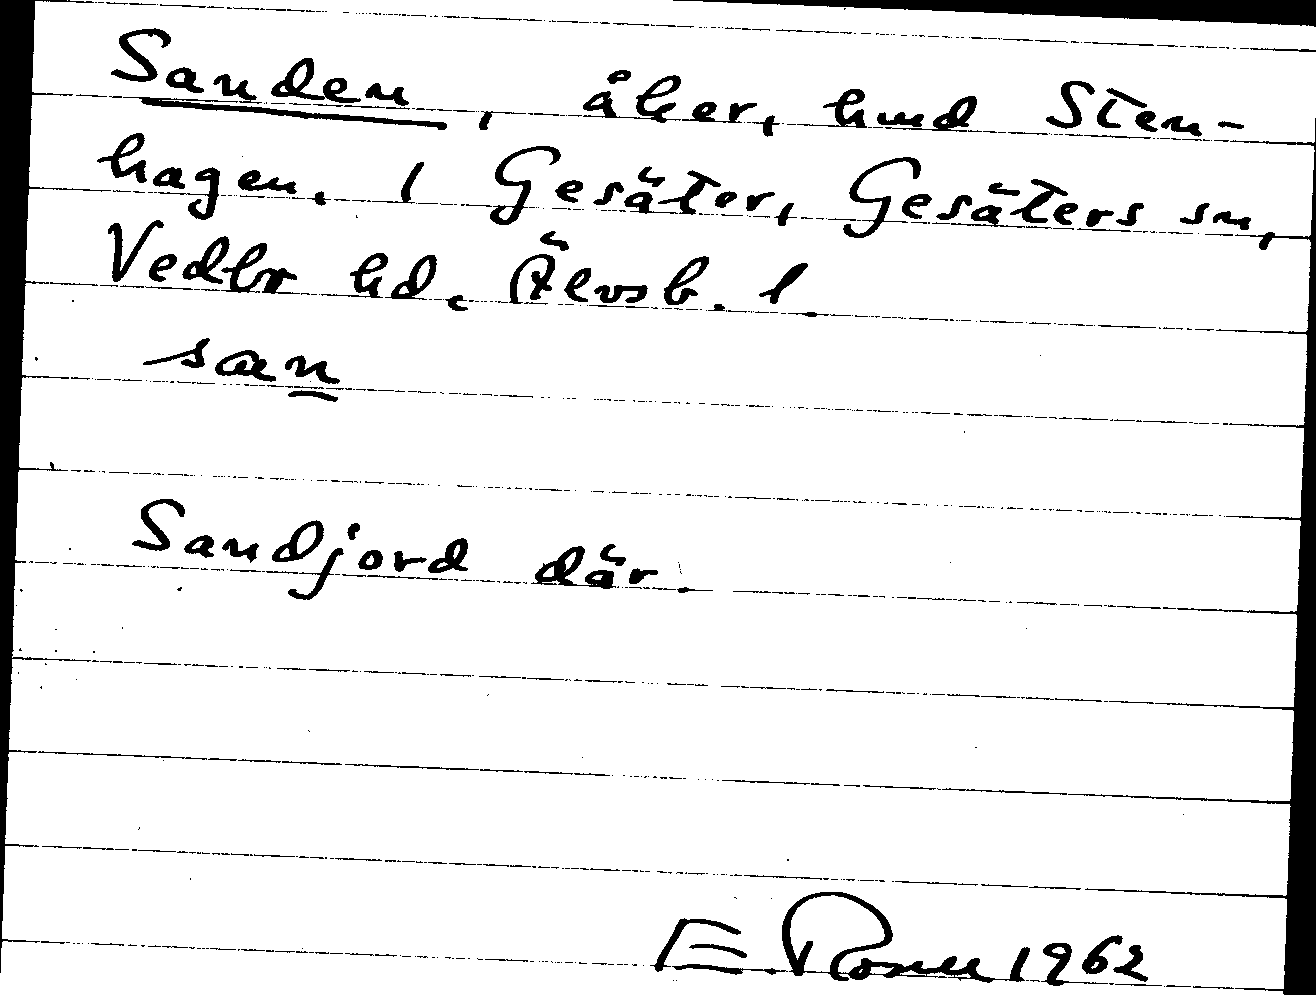 Sanden, åker, hmd Sten-
hagen. 1 Gesäter, Gesäters sn,
Vedbo hd. Älvsb. l.
san
Sandjord där.
E. Rosell 1962